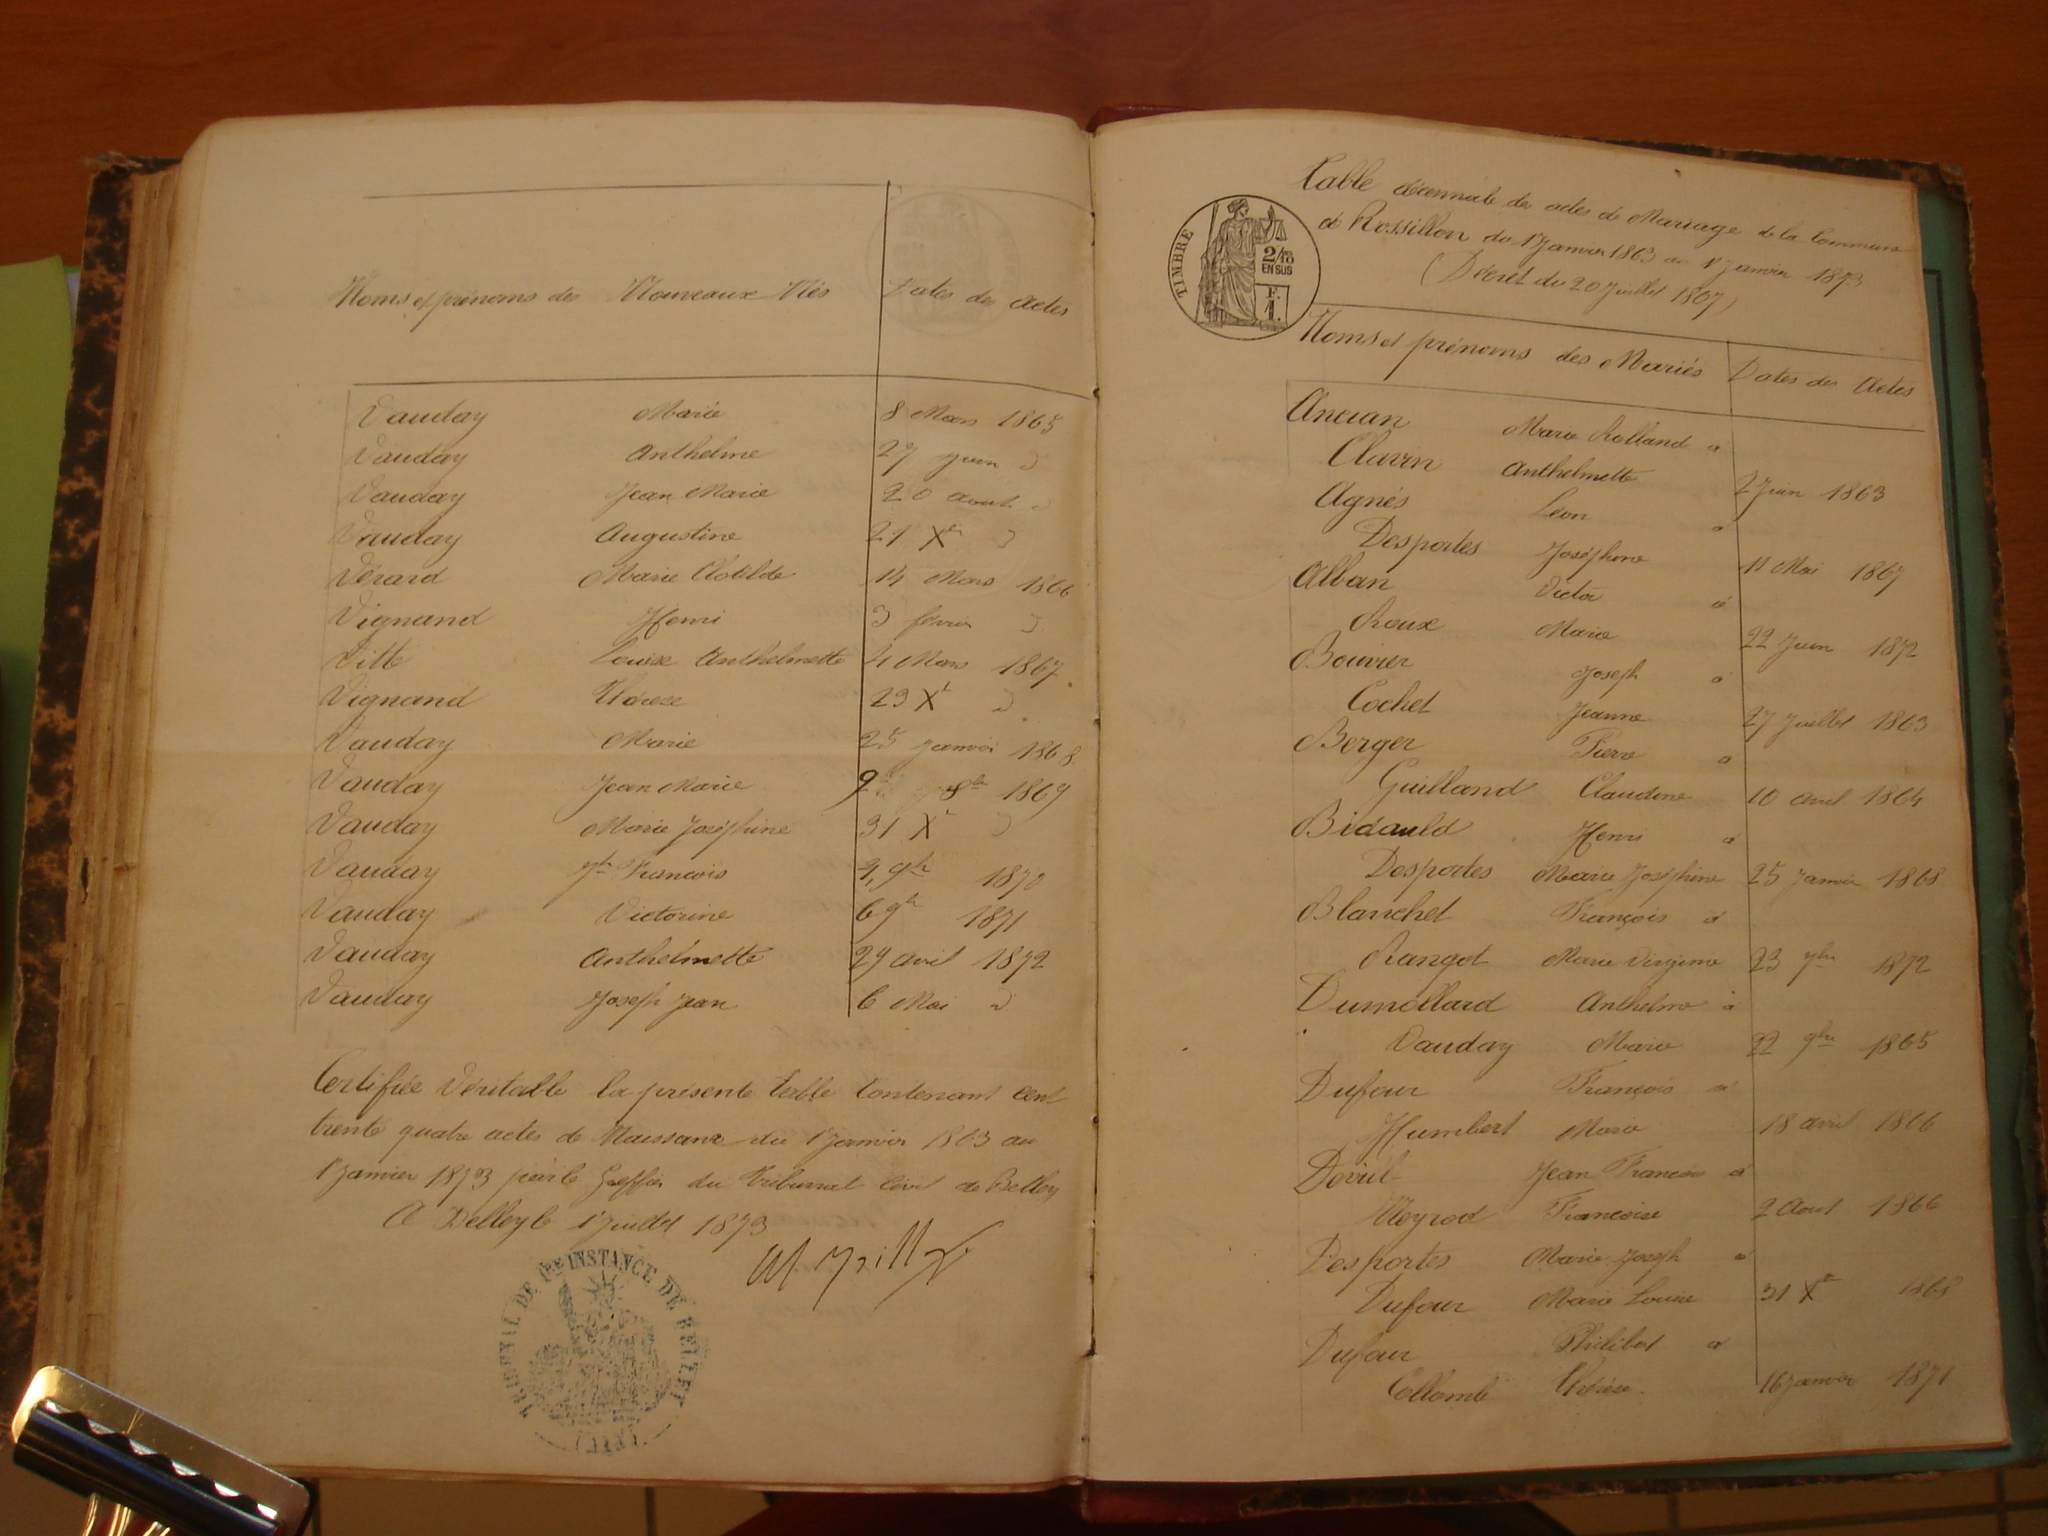 Noms et prénoms des Nouveaux Nés Dates des Actes
Vauday Marie 8 Mars 1865
Vauday Anthelme 27 juin d
Vauday Jean Marie 20 aout d
Vauday Augustine 21 Xbre d
Vérard Marie Clotilde 14 Mars 1866
Vignand Henri 3 février d
Vitte Louise Anthelmette 4 Mars 1867
Vignand 29 Xe d
Vauday Marie 25 janvier 1868
Vauday Jean Marie 9 8bre 1869
Vauday Marie Joséphine 31 Xe d
Vauday François 4 9bre 1870
Vauday Victorine 6 9bre 1871
Vauday Anthelmette 29 avril 1872
Vauday Joseph Jean 6 Mai d
Certifiée Véritable la présente table Contenant cent
trente quatre actes de Naissance du 1er janvier 1863 au
1er janvier 1873 par le Greffier du Tribunal Civil de Belley
A Belley le 1er juillet 1873
TRIBUNAL DE 1re INSTANCE DE BELLEY
(AIN)
Table décennale des actes de Mariage de la Commune
de Rossillon du 1er Janvier 1863 au 1er janvier 1873
(Décret du 20 Juillet 1807)
TIMBRE
2/10
EN SUS
F.
1.
Noms et prénoms des Mariés Dates des Actes
Ancian Marie Rolland à
Clavin Anthelmette 2 Juin 1863
Agnés Léon à
Desportes Joséphine 11 Mai 1867
Alban Victor à
Roux Marie 22 Juin 1872
Bouvier Joseph à
Cochet Jeanne 27 Juillet 1863
Berger Pierre à
Guilland Claudine 10 avril 1864
Bidauld Henri à
Desportes Marie Joséphine 25 Janvier 1868
Blanchet François à
Rangot Marie Virginie 23 9bre 1872
Dumollard Anthelme à
Vauday Marie 22 9bre 1865
Dufour François à
Humbert Marie 18 avril 1866
Jean François à
Meyrod Françoise 2 Aout 1866
Desportes Marie Joseph à
Dufour Marie Louise 31 Xe 1868
Dufour Philibert à
Collomb Thérèse 16 janvier 1871